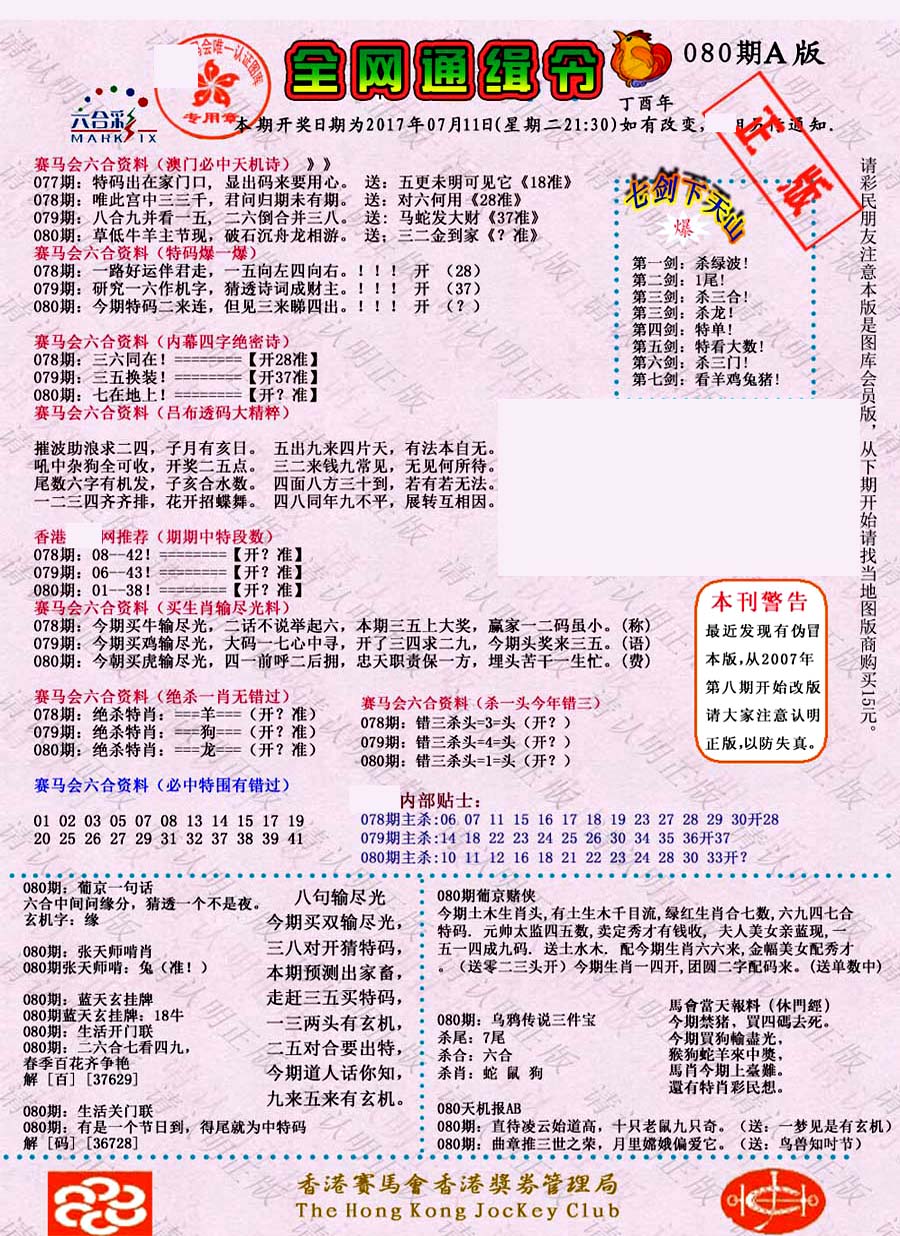 马会唯一认证图库
专用章
六合彩
MARK SIX
全网通缉令
080期A版
丁酉年
本期开奖日期为2017年07月11日(星期二21:30)如有改变,
通知.
正版
赛马会六合资料（澳门必中天机诗）》》
077期：特码出在家门口, 显出码来要用心。 送：五更未明可见它《18准》
078期：唯此宫中三三千, 君问归期未有期。 送：对六何用《28准》
079期：八合九并看一五, 二六倒合并三八。 送：马蛇发大财《37准》
080期：草低牛羊主节现, 破石沉舟龙相游。 送；三二金到家《？准》
赛马会六合资料（特码爆一爆）
078期：一路好运伴君走, 一五向左四向右。！！！ 开 （28）
079期：研究一六作机字, 猜透诗词成财主。！！！ 开 （37）
080期：今期特码二来连, 但见三来睇四出。！！！ 开 （？）
七剑下天山
爆
第一剑：杀绿波！
第二剑：1尾！
第三剑：杀三合！
第三剑：杀龙！
第四剑：特单！
第五剑：特看大数！
第六剑：杀三门！
第七剑：看羊鸡兔猪！
请彩民朋友注意本版是图库会员版，从下期开始请找当地图版商购买15元。
赛马会六合资料（内幕四字绝密诗）
078期：三六同在！========【开28准】
079期：三五换装！========【开37准】
080期：七在地上！========【开？准】
赛马会六合资料（吕布透码大精粹）
摧波助浪求二四，子月有亥日。 五出九来四片天，有法本自无。
吼中杂狗全可收，开奖二五点。 三二来钱九常见，无见何所待。
尾数六字有机发，子亥合水数。 四面八方三十到，若有若无法。
一二三四齐齐排，花开招蝶舞。 四八同年九不平，展转互相因。
香港 网推荐（期期中特段数）
078期：08--42！========【开？准】
079期：06--43！========【开？准】
080期：01--38！========【开？准】
赛马会六合资料（买生肖输尽光料）
078期：今期买牛输尽光，二话不说举起六，本期三五上大奖，赢家一二码虽小。(称)
079期：今期买鸡输尽光，大码一七心中寻，开了三四求二九，今期头奖来三五。(语)
080期：今朝买虎输尽光，四一前呼二后拥，忠天职责保一方，埋头苦干一生忙。(费)
本刊警告
最近发现有伪冒
本版,从2007年
第八期开始改版
请大家注意认明
正版,以防失真。
赛马会六合资料（绝杀一肖无错过）
078期：绝杀特肖：===羊===（开？准）
079期：绝杀特肖：===狗===（开？准）
080期：绝杀特肖：===龙===（开？准）
赛马会六合资料（杀一头今年错三）
078期：错三杀头=3=头（开？）
079期：错三杀头=4=头（开？）
080期：错三杀头=1=头（开？）
赛马会六合资料（必中特围有错过）
01 02 03 05 07 08 13 14 15 17 19
20 25 26 27 29 31 32 37 38 39 41
内部贴士：
078期主杀:06 07 11 15 16 17 18 19 23 27 28 29 30开28
079期主杀:14 18 22 23 24 25 26 30 34 35 36开37
080期主杀:10 11 12 16 18 21 22 23 24 28 30 33开？
080期：葡京一句话
六合中间问缘分，猜透一个不是夜。
玄机字：缘
080期：张天师啃肖
080期张天师啃：兔（准！）
080期：蓝天玄挂牌
080期蓝天玄挂牌：18牛
080期：生活开门联
080期：二六合七看四九，
春季百花齐争艳
解［百］[37629]
080期：生活关门联
080期：有是一个节日到，得尾就为中特码
解［码］[36728]
八句输尽光
今期买双输尽光，
三八对开猜特码，
本期预测出家畜，
走赶三五买特码，
一三两头有玄机，
二五对合要出特，
今期道人话你知，
九来五来有玄机。
080期葡京赌侠
今期土木生肖头,有土生木千目流,绿红生肖合七数,六九四七合
特码. 元帅太监四五数,卖定秀才有钱收, 夫人美女亲蓝现,一
五一四成九码. 送土水木. 配今期生肖六六来,金幅美女配秀才
。（送零二三头开）今期生肖一四开,团圆二字配码来。(送单数中)
080期：乌鸦传说三件宝
杀尾：7尾
杀合：六合
杀肖：蛇 鼠 狗
馬會當天報料（休門經）
今期禁猪，買四碼去死。
今期買狗輸盡光，
猴狗蛇羊來中獎，
馬肖今期上臺難。
還有特肖彩民想。
080天机报AB
080期：直待凌云始道高，十只老鼠九只奇。（送：一梦见是有玄机）
080期：曲章推三世之荣，月里嫦娥偏爱它。（送：鸟兽知吋节）
香港賽馬會香港獎券管理局
The Hong Kong JocKey Club